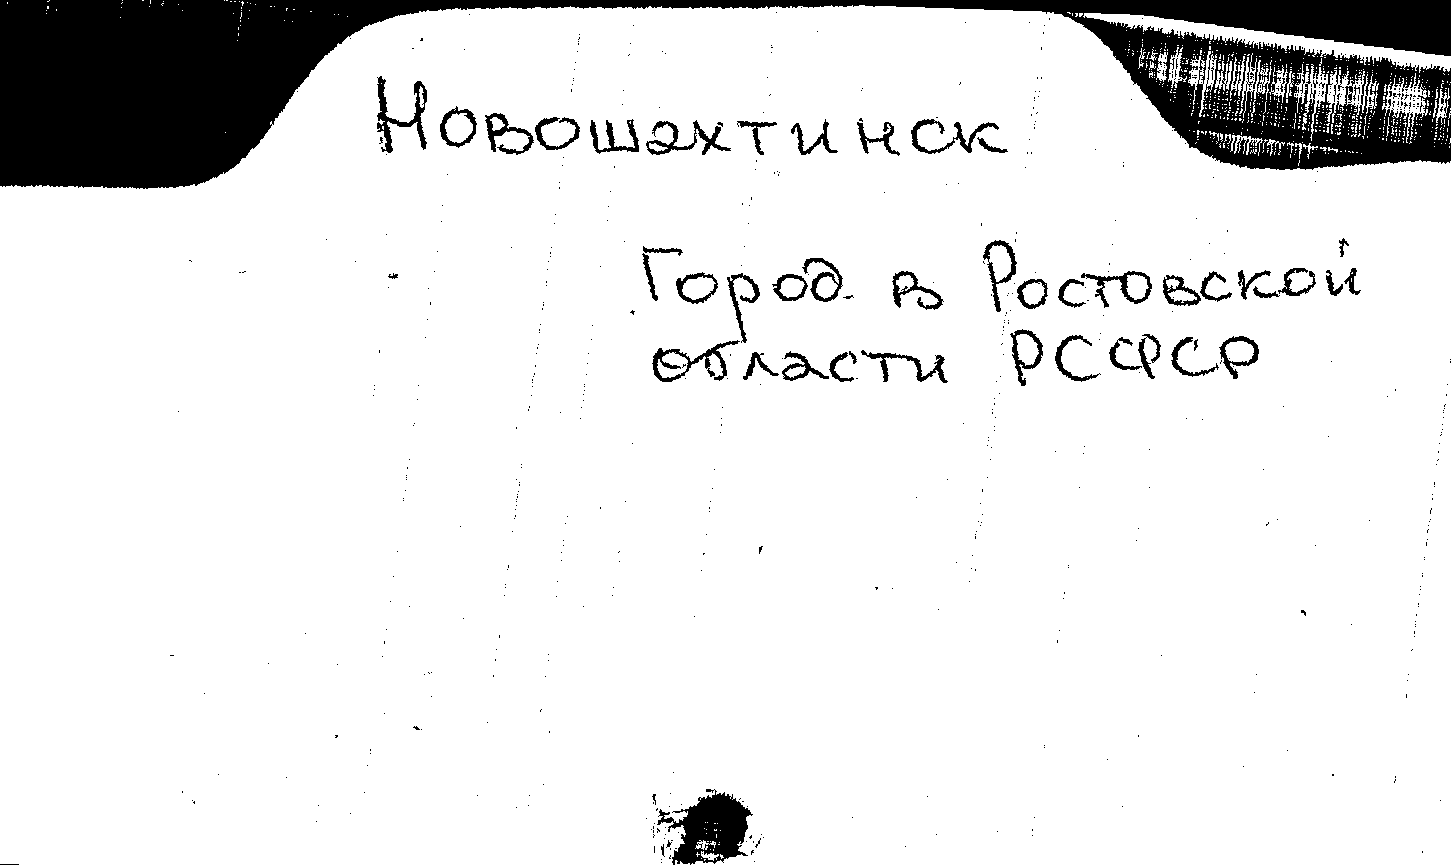 Новошахтинск
Город в Ростовской
области РСФСР